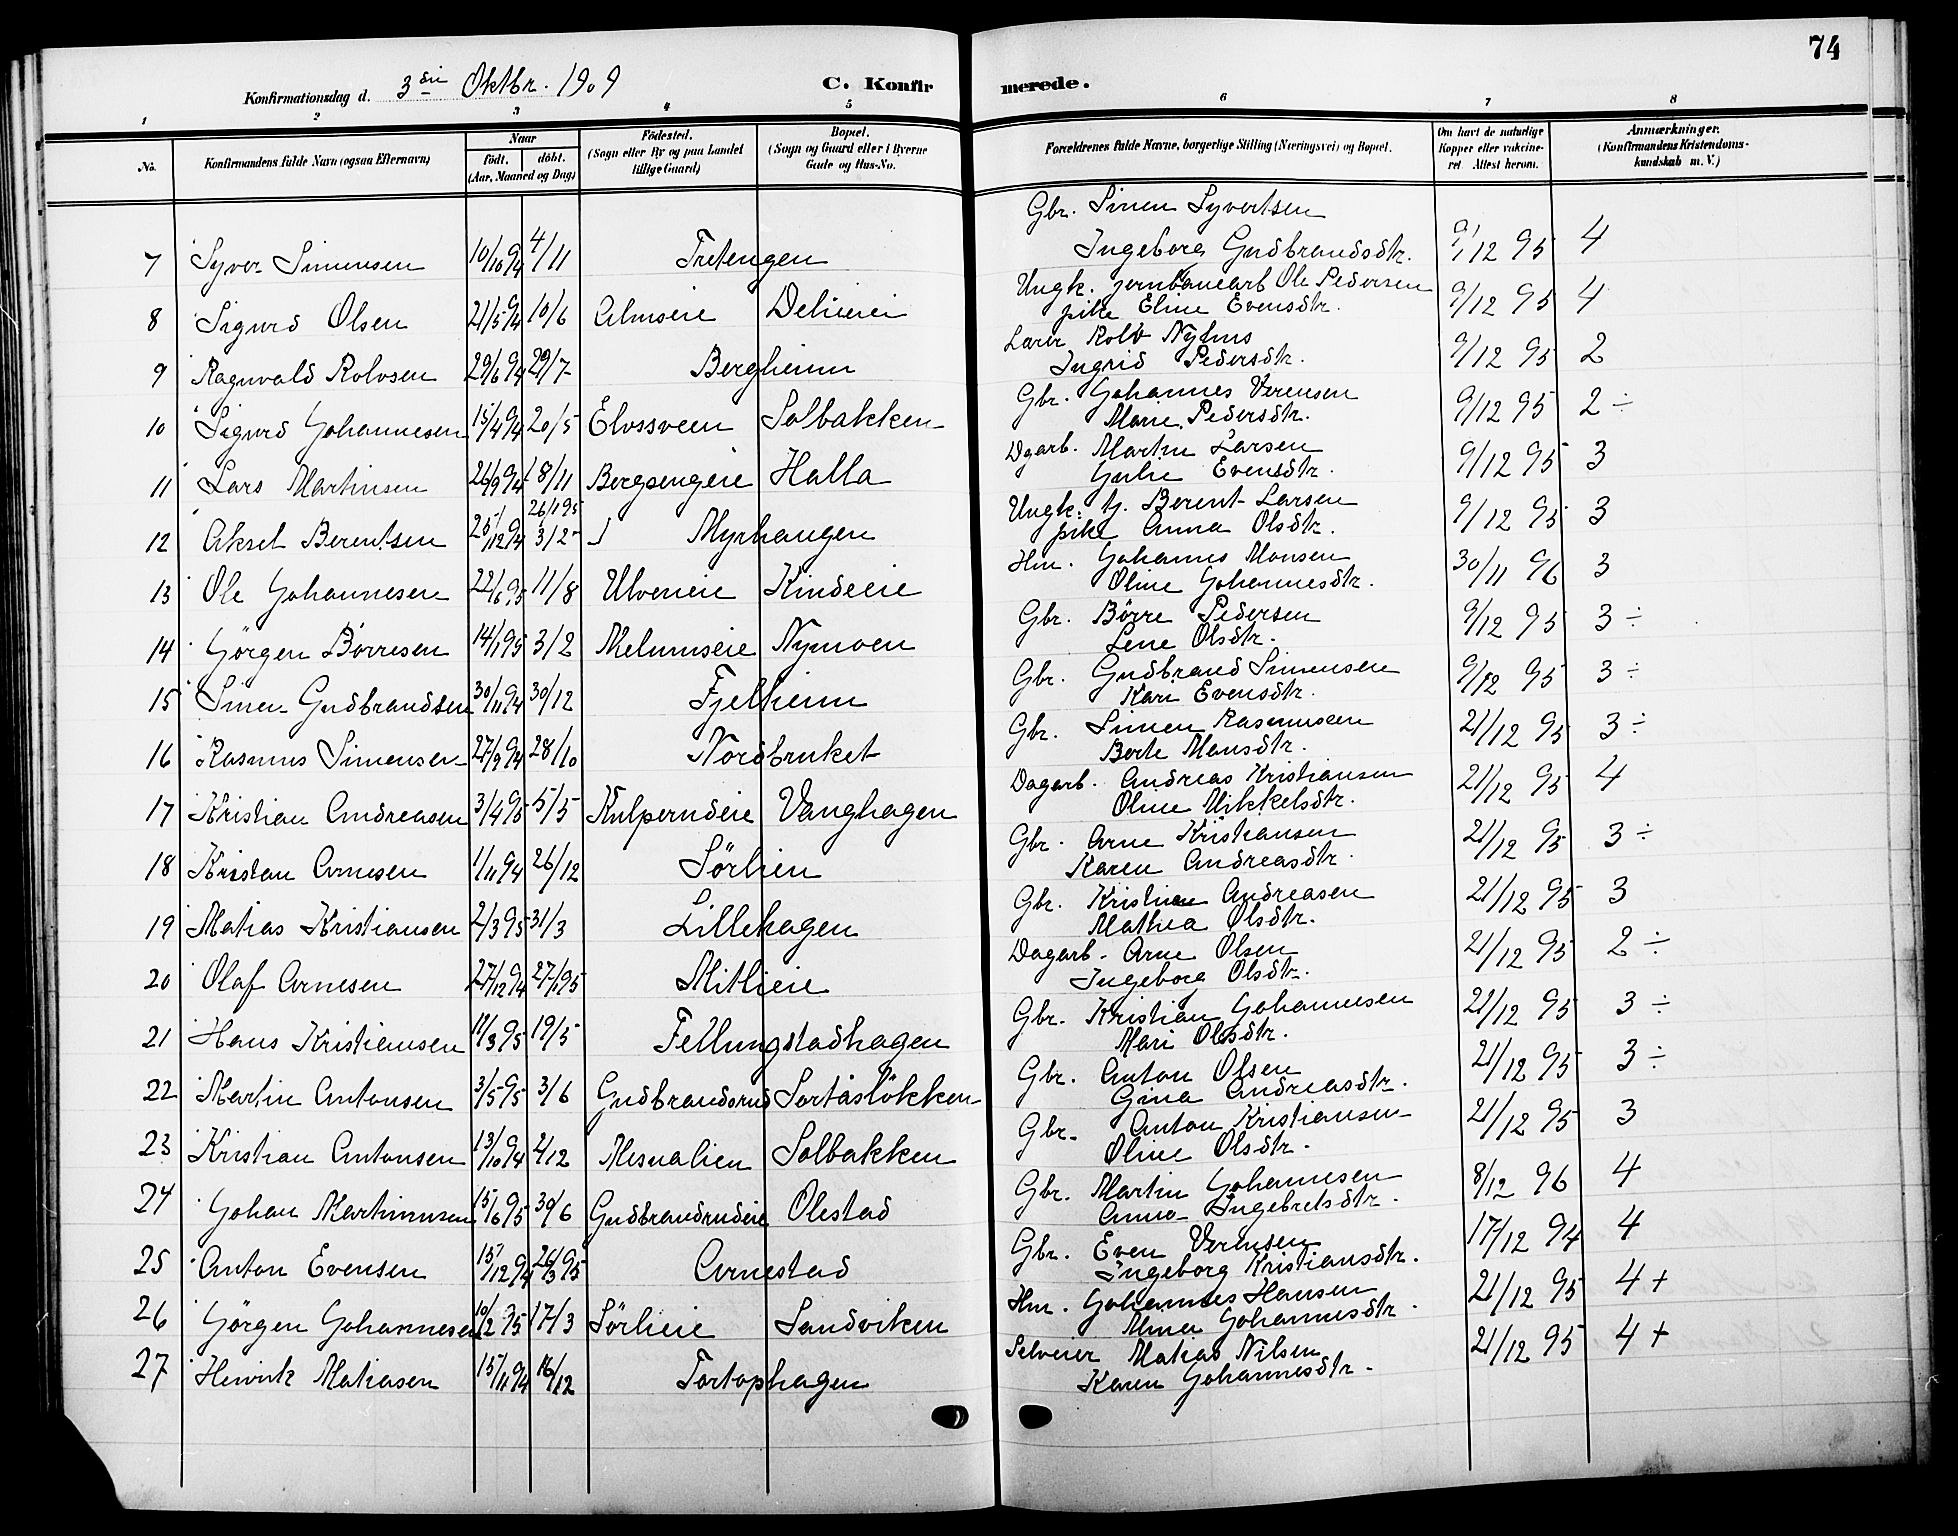 74
Konfirmationsdag d. 3die Oktbr. 1909
C. Konfirmerede.
1 2 3 4 5 6 7 8
No.
Konfirmandens fulde Navn (ogsaa Efternavn)
Naar
født. døbt.
(Aar, Maaned og Dag)
Fødested.
(Sogn eller By og paa Landet
tillige Gaard)
Bopæl.
(Sogn og Gaard eller i Byerne
Gade og Hus-No.
Forældrenes fulde Navne, borgerlige Stilling (Næringsvei) og Bopæl.
Om havt de naturlige
Kopper eller vakcine-
ret Attest herom.
Anmærkninger.
(Konfirmandens Kristendoms-
kundskab m. V.)
Gbr. Simen Syvertsen
7 Syver Simensen 10/10 94 4/11 Tretengen Ingeborg Gudbrandsdtr. 9/12 95 4
Ungk. jernbanearb Ole Pedersen
8 Sigurd Olsen 21/5 94 10/6 Almseie Delieiei pike Eline Evensdtr. 9/12 95 4
Lærer Rolv Nyhus
9 Ragnvald Rolvsen 29/6 94 29/7 Bergheim Ingrid Pedersdtr. 9/12 95 2
Gbr. Johannes Verensen
10 Sigurd Johannesen 15/4 94 20/5 Elvssveen Solbakken Marie Pedersdtr. 9/12 95 2 ÷
Dgarb. Martin Larsen
11 Lars Martinsen 26/9 94 18/11 Bergsengeie Halla Julie Evensdtr. 9/12 95 3
Ungk. tj. Berent Larsen
26/1 95
12 Aksel Berentsen 25/12 94 3/2 Myrhaugen pike Anna Olsdtr. 9/12 95 3
Hm. Johannes Monsen
13 Ole Johannesen 22/6 95 11/8 Ulveneie Kindseie Oline Johannesdtr. 30/11 96 3
Gbr. Börre Pedersen
14 Jörgen Börresen 14/1 95 3/2 Melumseie Nymoen Lene Olsdtr. 9/12 95 3 ÷
Gbr. Gudbrand Simensen
15 Simen Gudbrandsen 30/11 94 30/12 Fjelheim Kari Evensdtr. 9/12 95 3 ÷
Gbr. Simen Rasmussen
16 Rasmus Simensen 27/9 94 28/10 Nordbruket Berte Monsdtr. 21/12 95 3 ÷
Dagarb. Andreas Kristiansen
17 Kristian Andreasen 3/4 95 5/5 Kulperudeie Vanghagen Oline Mikkelsdtr. 21/12 95 4
Gbr. Arne Kristiansen
18 Kristian Arnesen 1/11 94 26/12 Sörlien Karen Andreasdtr. 21/12 95 3 ÷
Gbr. Kristian Andreasen
19 Matias Kristiansen 2/3 95 31/3 Lillehagen Mathea Olsdtr. 21/12 95 3
Dagarb. Arne Olsen
20 Olaf Arnesen 27/12 94 27/1 95 Mitlieie Ingeborg Olsdtr. 21/12 95 2 ÷
Gbr. Kristian Johannesen
21 Hans Kristiansen 17/3 95 19/5 Fellungstadhagen Mari Olsdtr. 21/12 95 3 ÷
Gbr. Anton Olsen
22 Martin Antonsen 3/5 95 3/6 Gudbrandsrud Sortåslökken Gina Andreasdtr. 21/12 95 3 ÷
Gbr. Anton Kristiansen
23 Kristian Antonsen 13/10 94 2/12 Mesnalien Solbakken Oline Olsdtr. 21/12 95 3
Gbr. Martin Johannesen
24 Johan Martinusen 15/6 95 30/6 Gudbrandrudeie Olestad Anna Ingebretsdtr. 8/12 96 4
Gbr. Even Verensen
25 Anton Evensen 15/12 94 24/3 95 Arnestad Ingeborg Kristiansdtr. 17/12 94 4
Hm. Johannes Hansen
26 Jörgen Johannesen 10/2 95 17/3 Sörlieie Sandviken Mina Johannesdtr. 21/12 95 4 +
Selveier Matias Nilsen
27 Henrik Matiasen 15/11 94 16/12 Tortophagen Karen Johannesdtr. 21/12 95 4 +